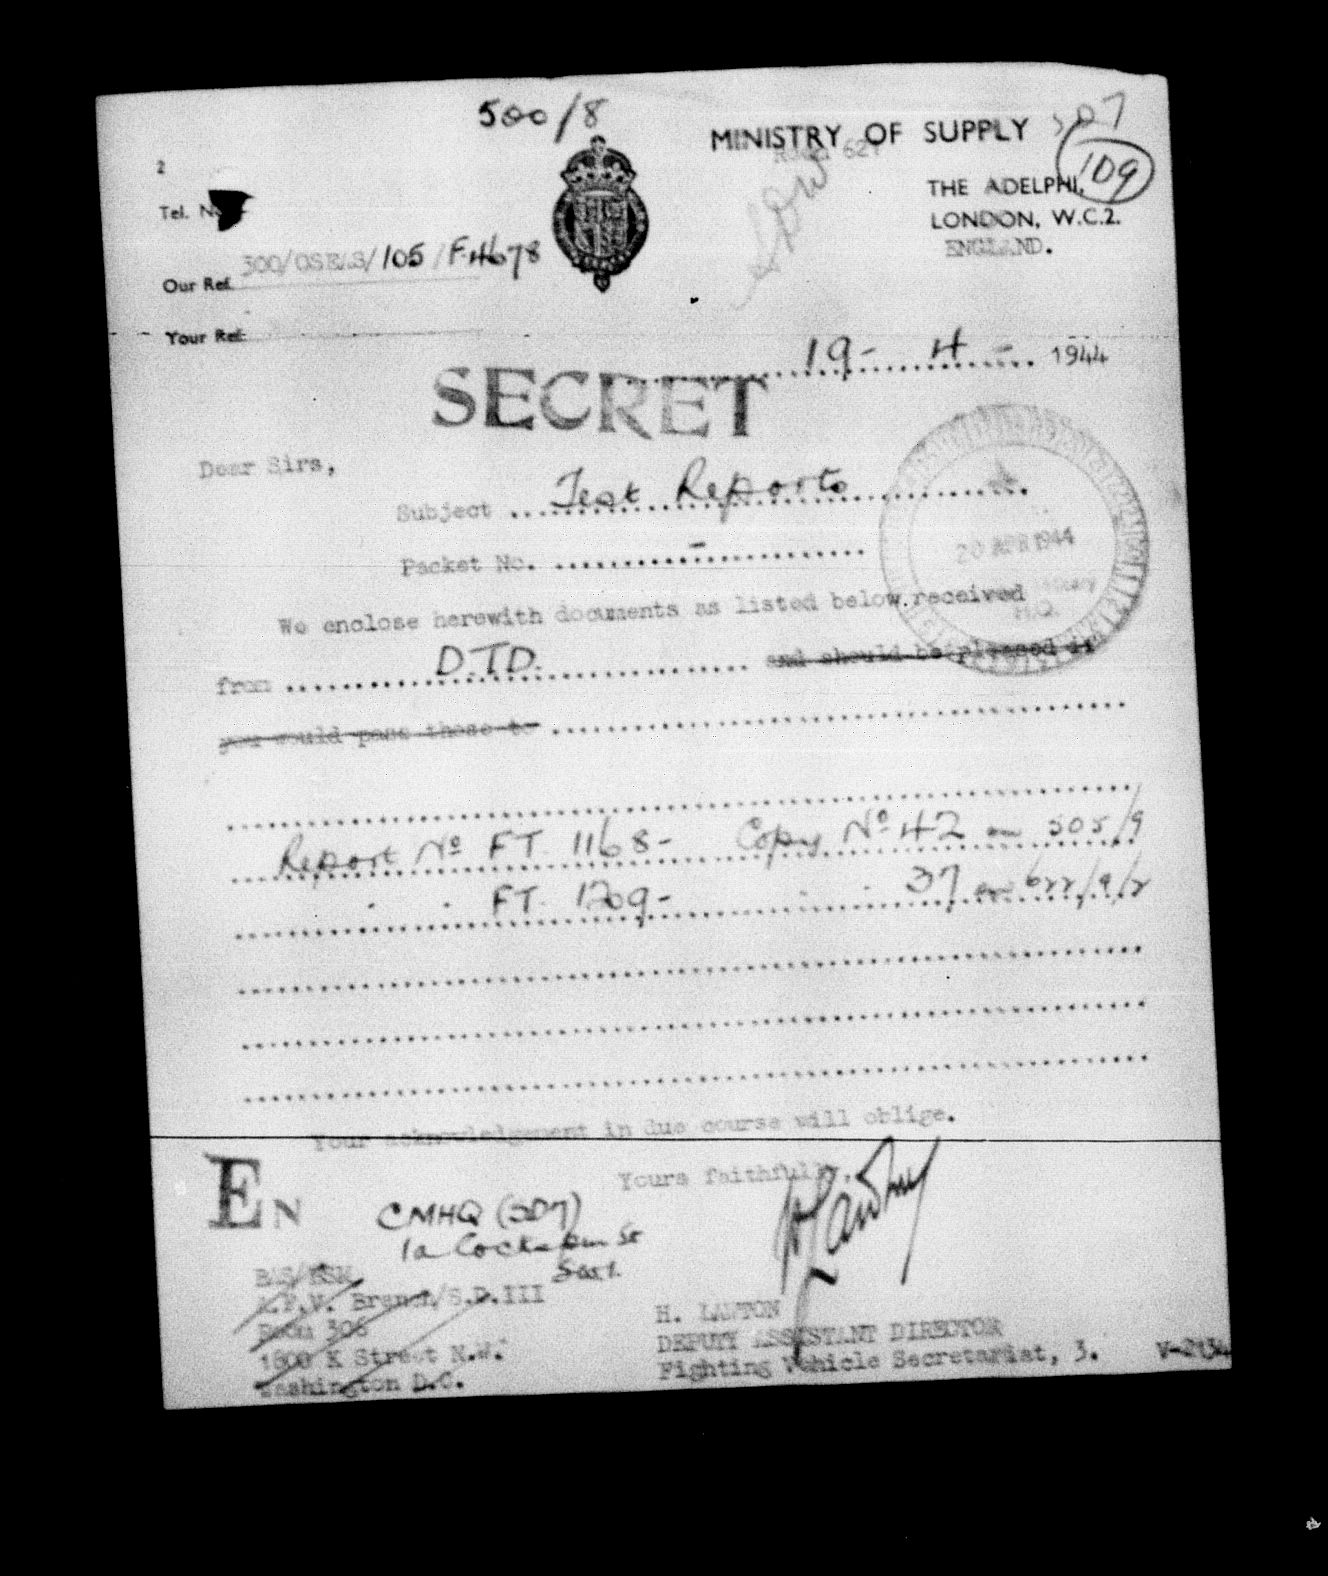 500/8
MINISTRY OF SUPPLY
2
THE ADELPHI,
109
Tel. No
LONDON, W.C.2.
ENGLAND.
Our Ref. 300/OSEAS/105/F.4678
Your Ref:
19- 4 - 1944
SECRET
Dear Sirs,
Subject Test Reports
Packet No. -
20 APR 1944
We enclose herewith documents as listed below received
H.Q.
from D.T.D. and should be pleased if
you would pass these to
Report No FT. 1168- Copy No 42 on 505/9
" " FT. 1209- " " 37 on 622/9/2
Your acknowledgement in due course will oblige.
Yours faithfully,
EN
CMHQ (SD7)
1a Cockspur St
A.F.V. Branch/S.D.III
Room 306
1800 K Street N.W.
Washington D.C.
H. LAWTON
DEPUTY ASSISTANT DIRECTOR
Fighting Vehicle Secretariat, 3.